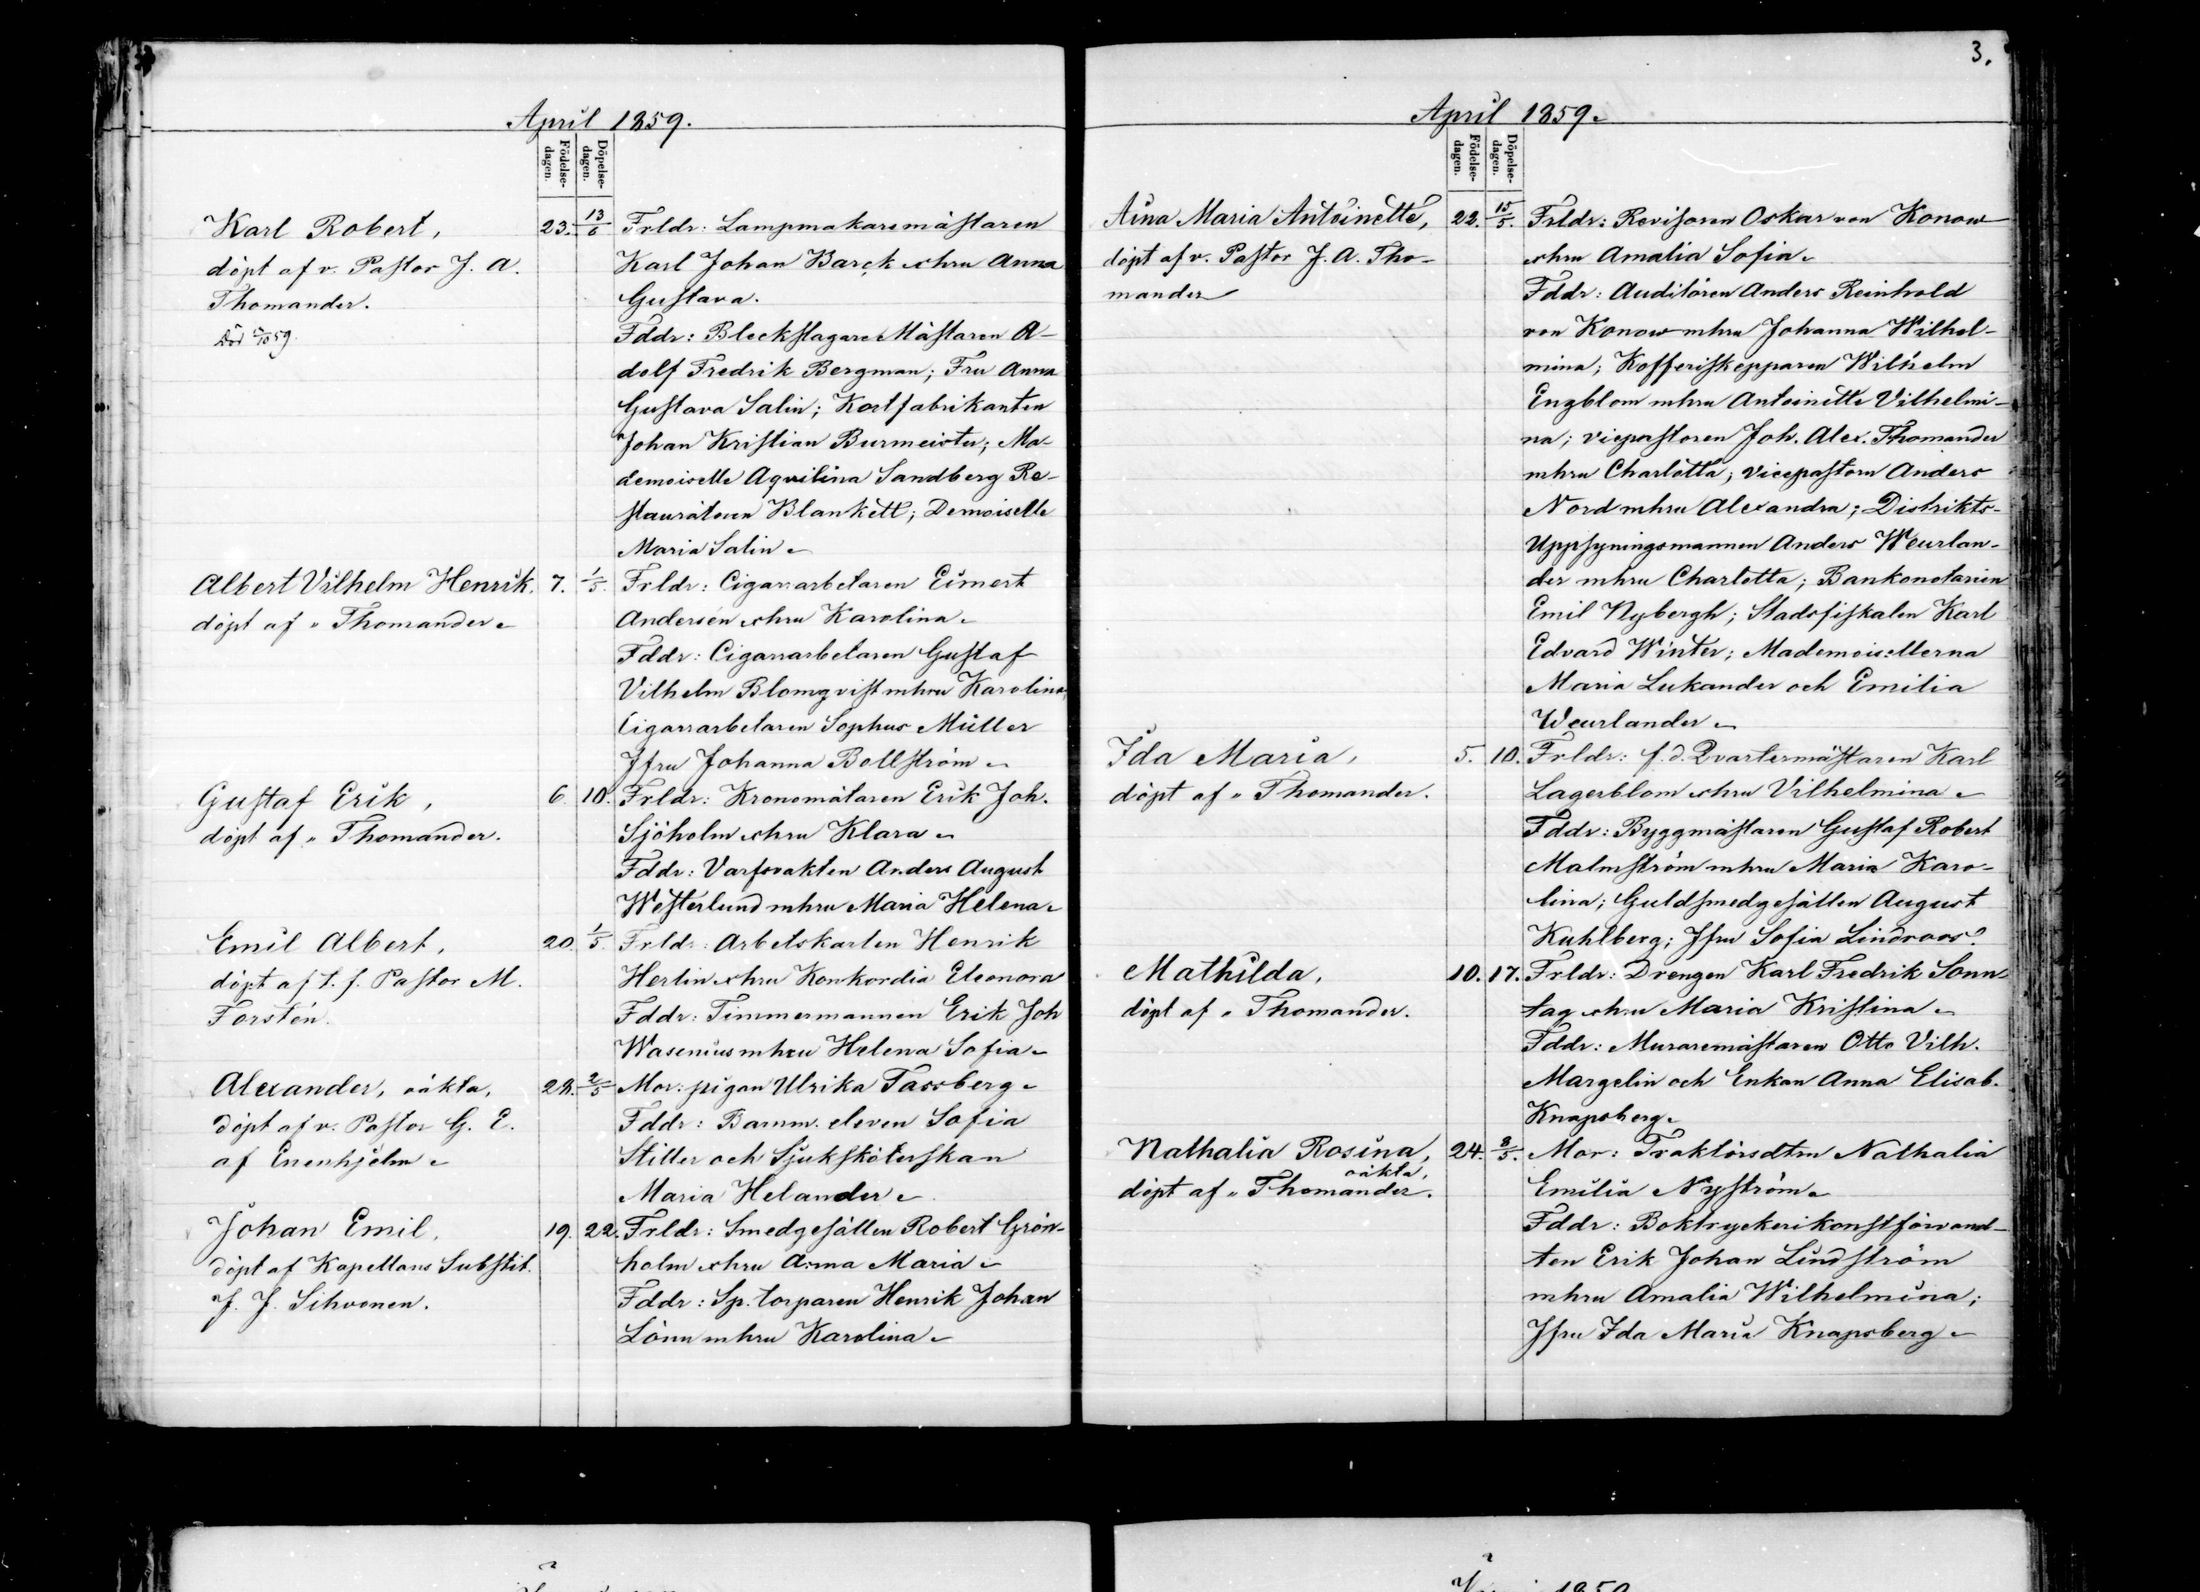 3.
April 1859.
Födelse-
dagen.
Döpelse-
dagen.
Karl Robert,
döpt af v. Pastor J. A.
Thomander.
Död
23. 13/6
Frldr: Lampmakaremästaren
Karl Johan Barck o hru Anna
Gustava.
Fddr: Bleckslagare Mästaren A-
dolf Fredrik Bergman; Fru Anna
Gustava Salin; Kortfabrikanten
Johan Kristian Burmeister; Ma-
demoiselle Aqvilina Sandberg Re-
stauratören Blankett; Demoiselle
Maria Salin.
Albert Vilhelm Henrik.
döpt af " Thomander.
7. 1/5.
Frldr: Cigarrarbetaren Eimert
Andersén o hru Karolina.
Fddr: Cigarrarbetaren Gustaf
Vilhelm Blomqvist mhru Karolina,
Cigarrarbetaren Sophus Müller
Jfru Johanna Bollström.
Gustaf Erik,
döpt af " Thomander.
6. 10.
Frldr: Kronomätaren Erik Joh.
Sjöholm o hru Klara.
Fddr: Varfsvakten Anders August
Westerlund mhru Maria Helena.
Emil Albert,
döpt af t. f. Pastor M.
Forstén.
20. 1/5.
Frldr: Arbetskarlen Henrik
Herlin o hru Konkordia Eleonora
Fddr: Timmermannen Erik Joh
Wasenius mhru Helena Sofia.
Alexander, oäkta,
döpt af v. Pastor G. E.
af Enenhjelm.
28. 2/5
Mor: pigan Ulrika Tassberg.
Fddr: Barnm. eleven Sofia
Stiller och Sjuksköterskan
Maria Helander.
Johan Emil,
döpt af Kapellans Substit.
J. J. Sihvonen.
19. 22.
Frldr: Smedgesällen Robert Grön-
holm o hru Anna Maria.
Fddr: Sp. torparen Henrik Johan
Lönn mhru Karolina.
April 1859.
Födelse-
dagen.
Döpelse-
dagen.
Aina Maria Antoinette,
döpt af v. Pastor J. A. Tho-
mander
22. 15/5.
Frldr: Revisoren Oskar von Konow
o hru Amalia Sofia.
Fddr: Auditören Anders Reinhold
von Konow mhru Johanna Wilhel-
mina; Kofferiskepparen Wilhelm
Engblom mhru Antoinette Vilhelmi-
na; vicepastoren Joh. Alex. Thomander
mhru Charlotta; Vicepastorn Anders
Nord mhru Alexandra; Distrikts-
Uppsyningsmannen Anders Weurlan-
der mhru Charlotta; Bankonotarien
Emil Nybergh; Stadsfiskalen Karl
Edvard Winter; Mademoisellerna
Maria Lukander och Emilia
Weurlander.
Ida Maria,
döpt af " Thomander.
5. 10.
Frldr: f. d. Qvartermästaren Karl
Lagerblom o hru Vilhelmina.
Fddr: Byggmästaren Gustaf Robert
Malmström mhru Maria Karo-
lina; Guldsmedgesällen August
Kuhlberg; Jfru Sofia Lindroos.
Mathilda,
döpt af " Thomander.
10. 17.
Frldr: Drengen Karl Fredrik Sonn-
tag o hru Maria Kristina.
Fddr: Muraremästaren Otto Vilh.
Margelin och Enkan Anna Elisab.
Knapsberg.
Nathalia Rosina,
oäkta,
döpt af " Thomander.
24. 3/5.
Mor: Traktörsdtrn Nathalia
Emilia Nyström.
Fddr: Boktryckerikonstförvand-
ten Erik Johan Lindström
mhru Amalia Wilhelmina;
Jfru Ida Maria Knapsberg.
1859